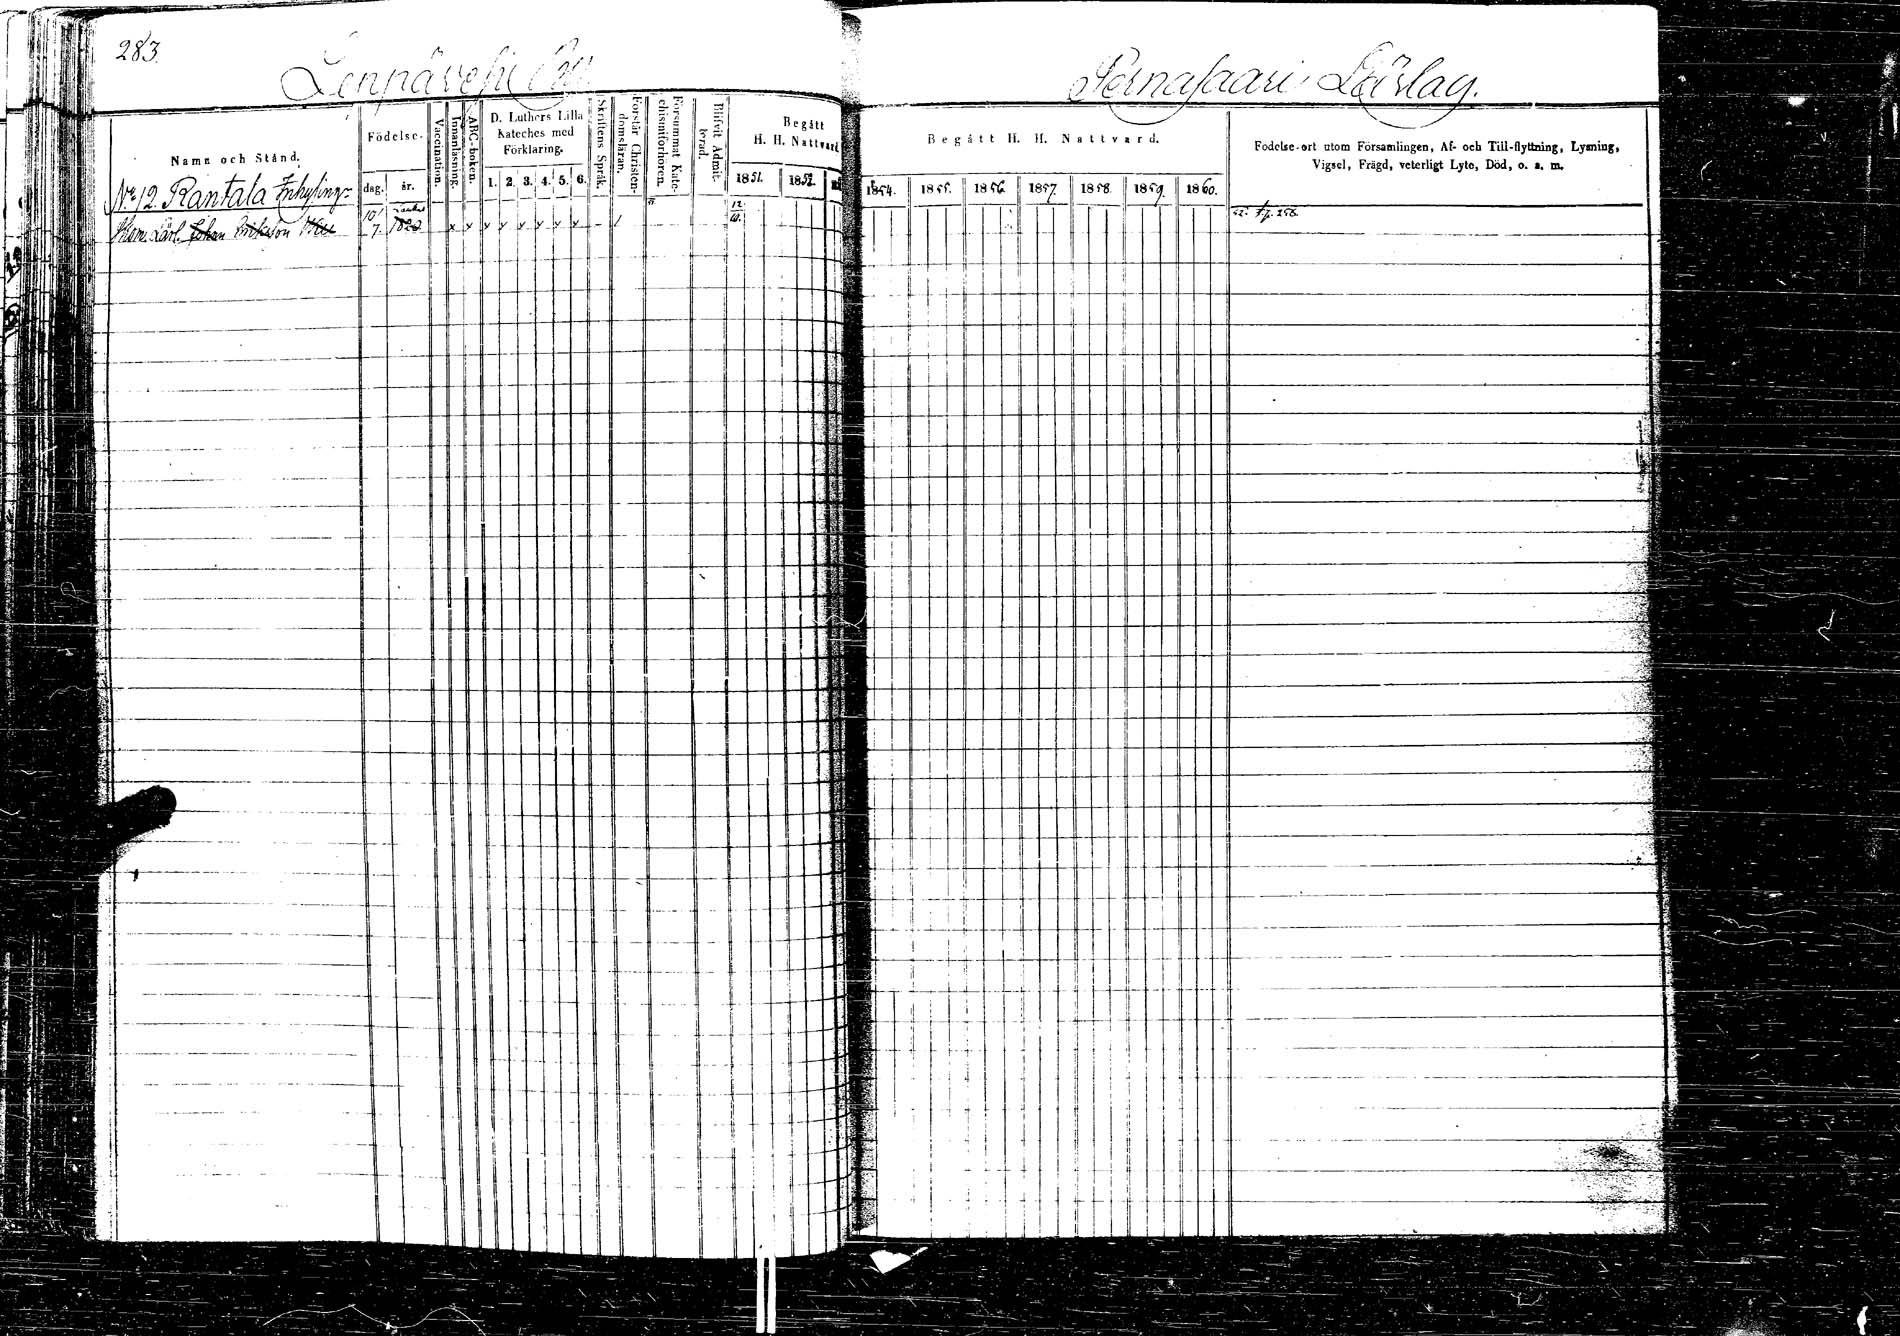 283.
Lenpävesi By
Namn och Stånd.
Födelse-
dag. år.
Vaccination.
Innanläsning.
ABC-boken.
D. Luthers Lilla
Kateches med
Förklaring.
1. 2. 3. 4. 5. 6.
Skriftens Språk.
Förstår Christen-
domsläran.
Försummat Kate-
chismiförhören.
Blifvit Admit-
terad.
Begått
H. H. Nattvard.
1851. 1852.
No 12. Rantala Inhysing-
Johan Eriksson
10/7. 1823
x x v v v v v v - /
12/10.
Pernasaari Lärlag.
Begått H. H. Nattvard.
1854. 1855. 1856. 1857. 1858. 1859. 1860.
Födelse-ort utom Församlingen, Af- och Till-flyttning, Lysning,
Vigsel, Frägd, veterligt Lyte, Död, o. s. m.
52. f.p. 258.